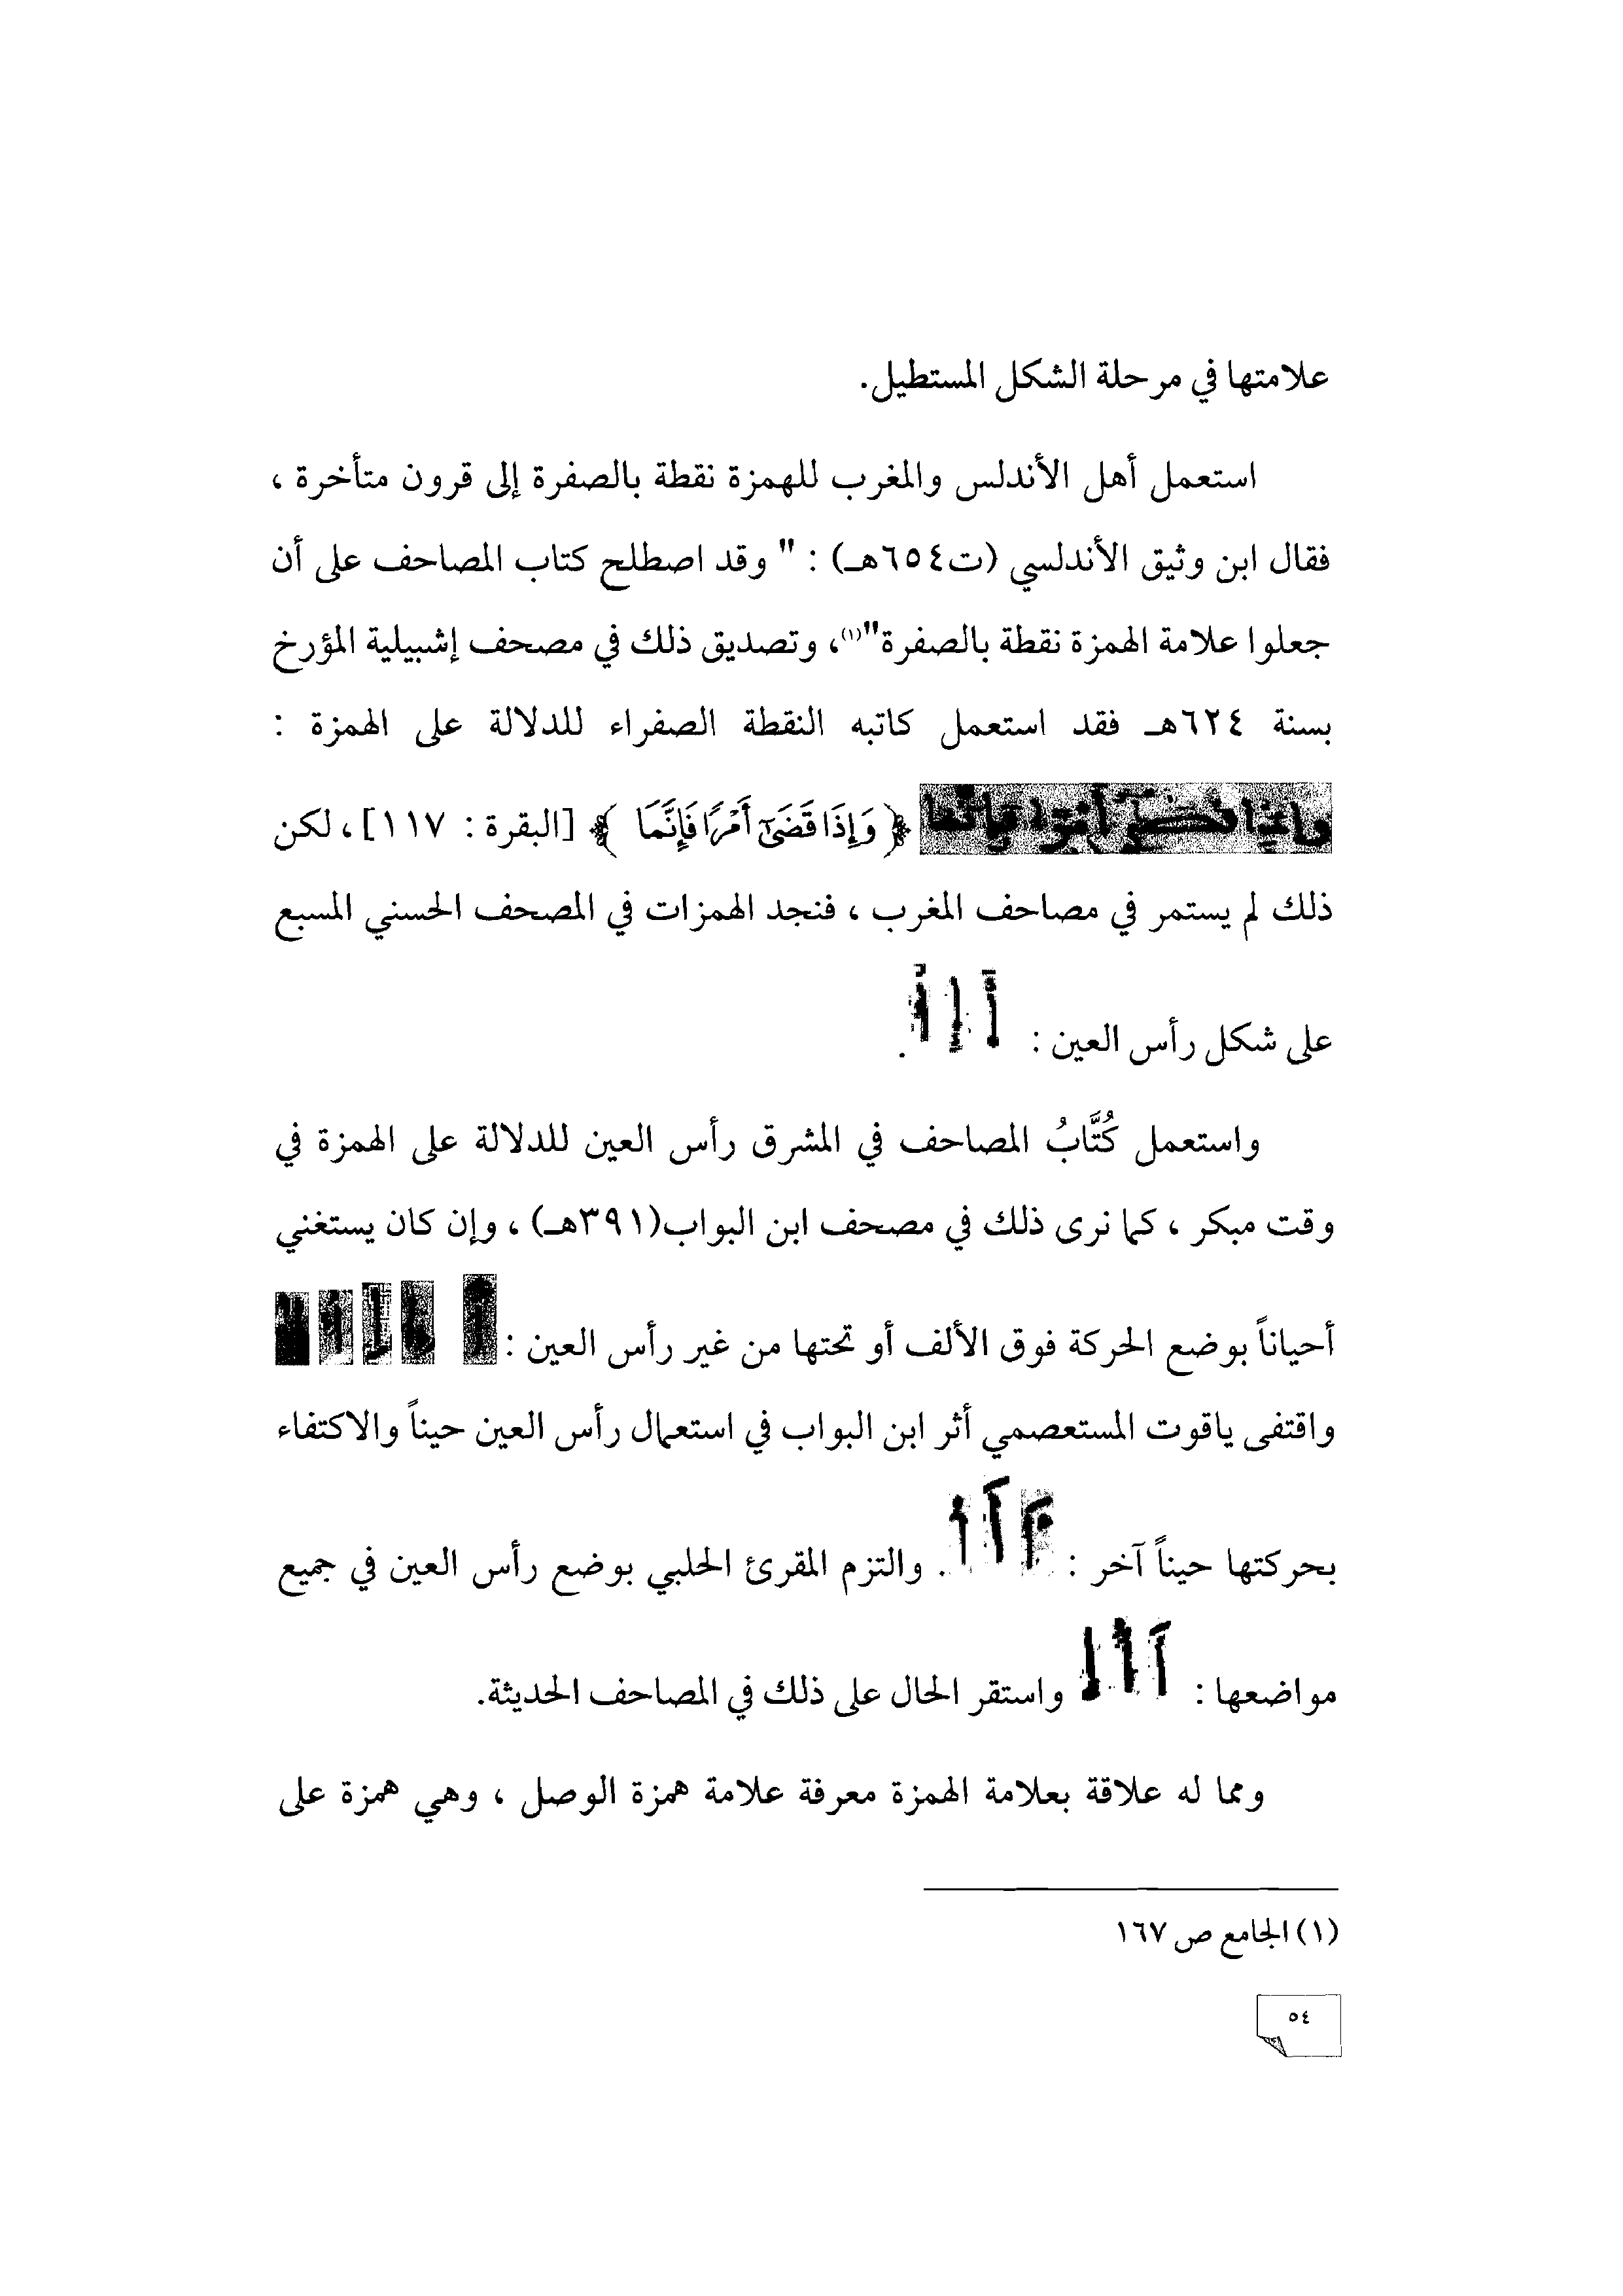 علامتها في مرحلة الشكل المستطيل.
استعمل أهل الأندلس والمغرب للهمزة نقطة بالصفرة إلى قرون متأخرة ،
فقال ابن وثيق الأندلسي (ت٦٥٤هـ) : " وقد اصطلح كتاب المصاحف على أن
جعلوا علامة الهمزة نقطة بالصفرة"(١)، وتصديق ذلك في مصحف إشبيلية المؤرخ
بسنة ٦٢٤هـ فقد استعمل كاتبه النقطة الصفراء للدلالة على الهمزة :
﴿ وَإِذَا قَضَىٰٓ أَمْرًا فَإِنَّمَا ﴾ [البقرة : ١١٧] ، لكن
ذلك لم يستمر في مصاحف المغرب ، فنجد الهمزات في المصحف الحسني المسبع
على شكل رأس العين : .
واستعمل كُتَّابُ المصاحف في المشرق رأس العين للدلالة على الهمزة في
وقت مبكر ، كما نرى ذلك في مصحف ابن البواب(٣٩١هـ) ، وإن كان يستغني
أحياناً بوضع الحركة فوق الألف أو تحتها من غير رأس العين :
واقتفى ياقوت المستعصمي أثر ابن البواب في استعمال رأس العين حيناً والاكتفاء
بحركتها حيناً آخر : . والتزم المقرئ الحلبي بوضع رأس العين في جميع
مواضعها : واستقر الحال على ذلك في المصاحف الحديثة.
ومما له علاقة بعلامة الهمزة معرفة علامة همزة الوصل ، وهي همزة على
(١) الجامع ص ١٦٧
٥٤